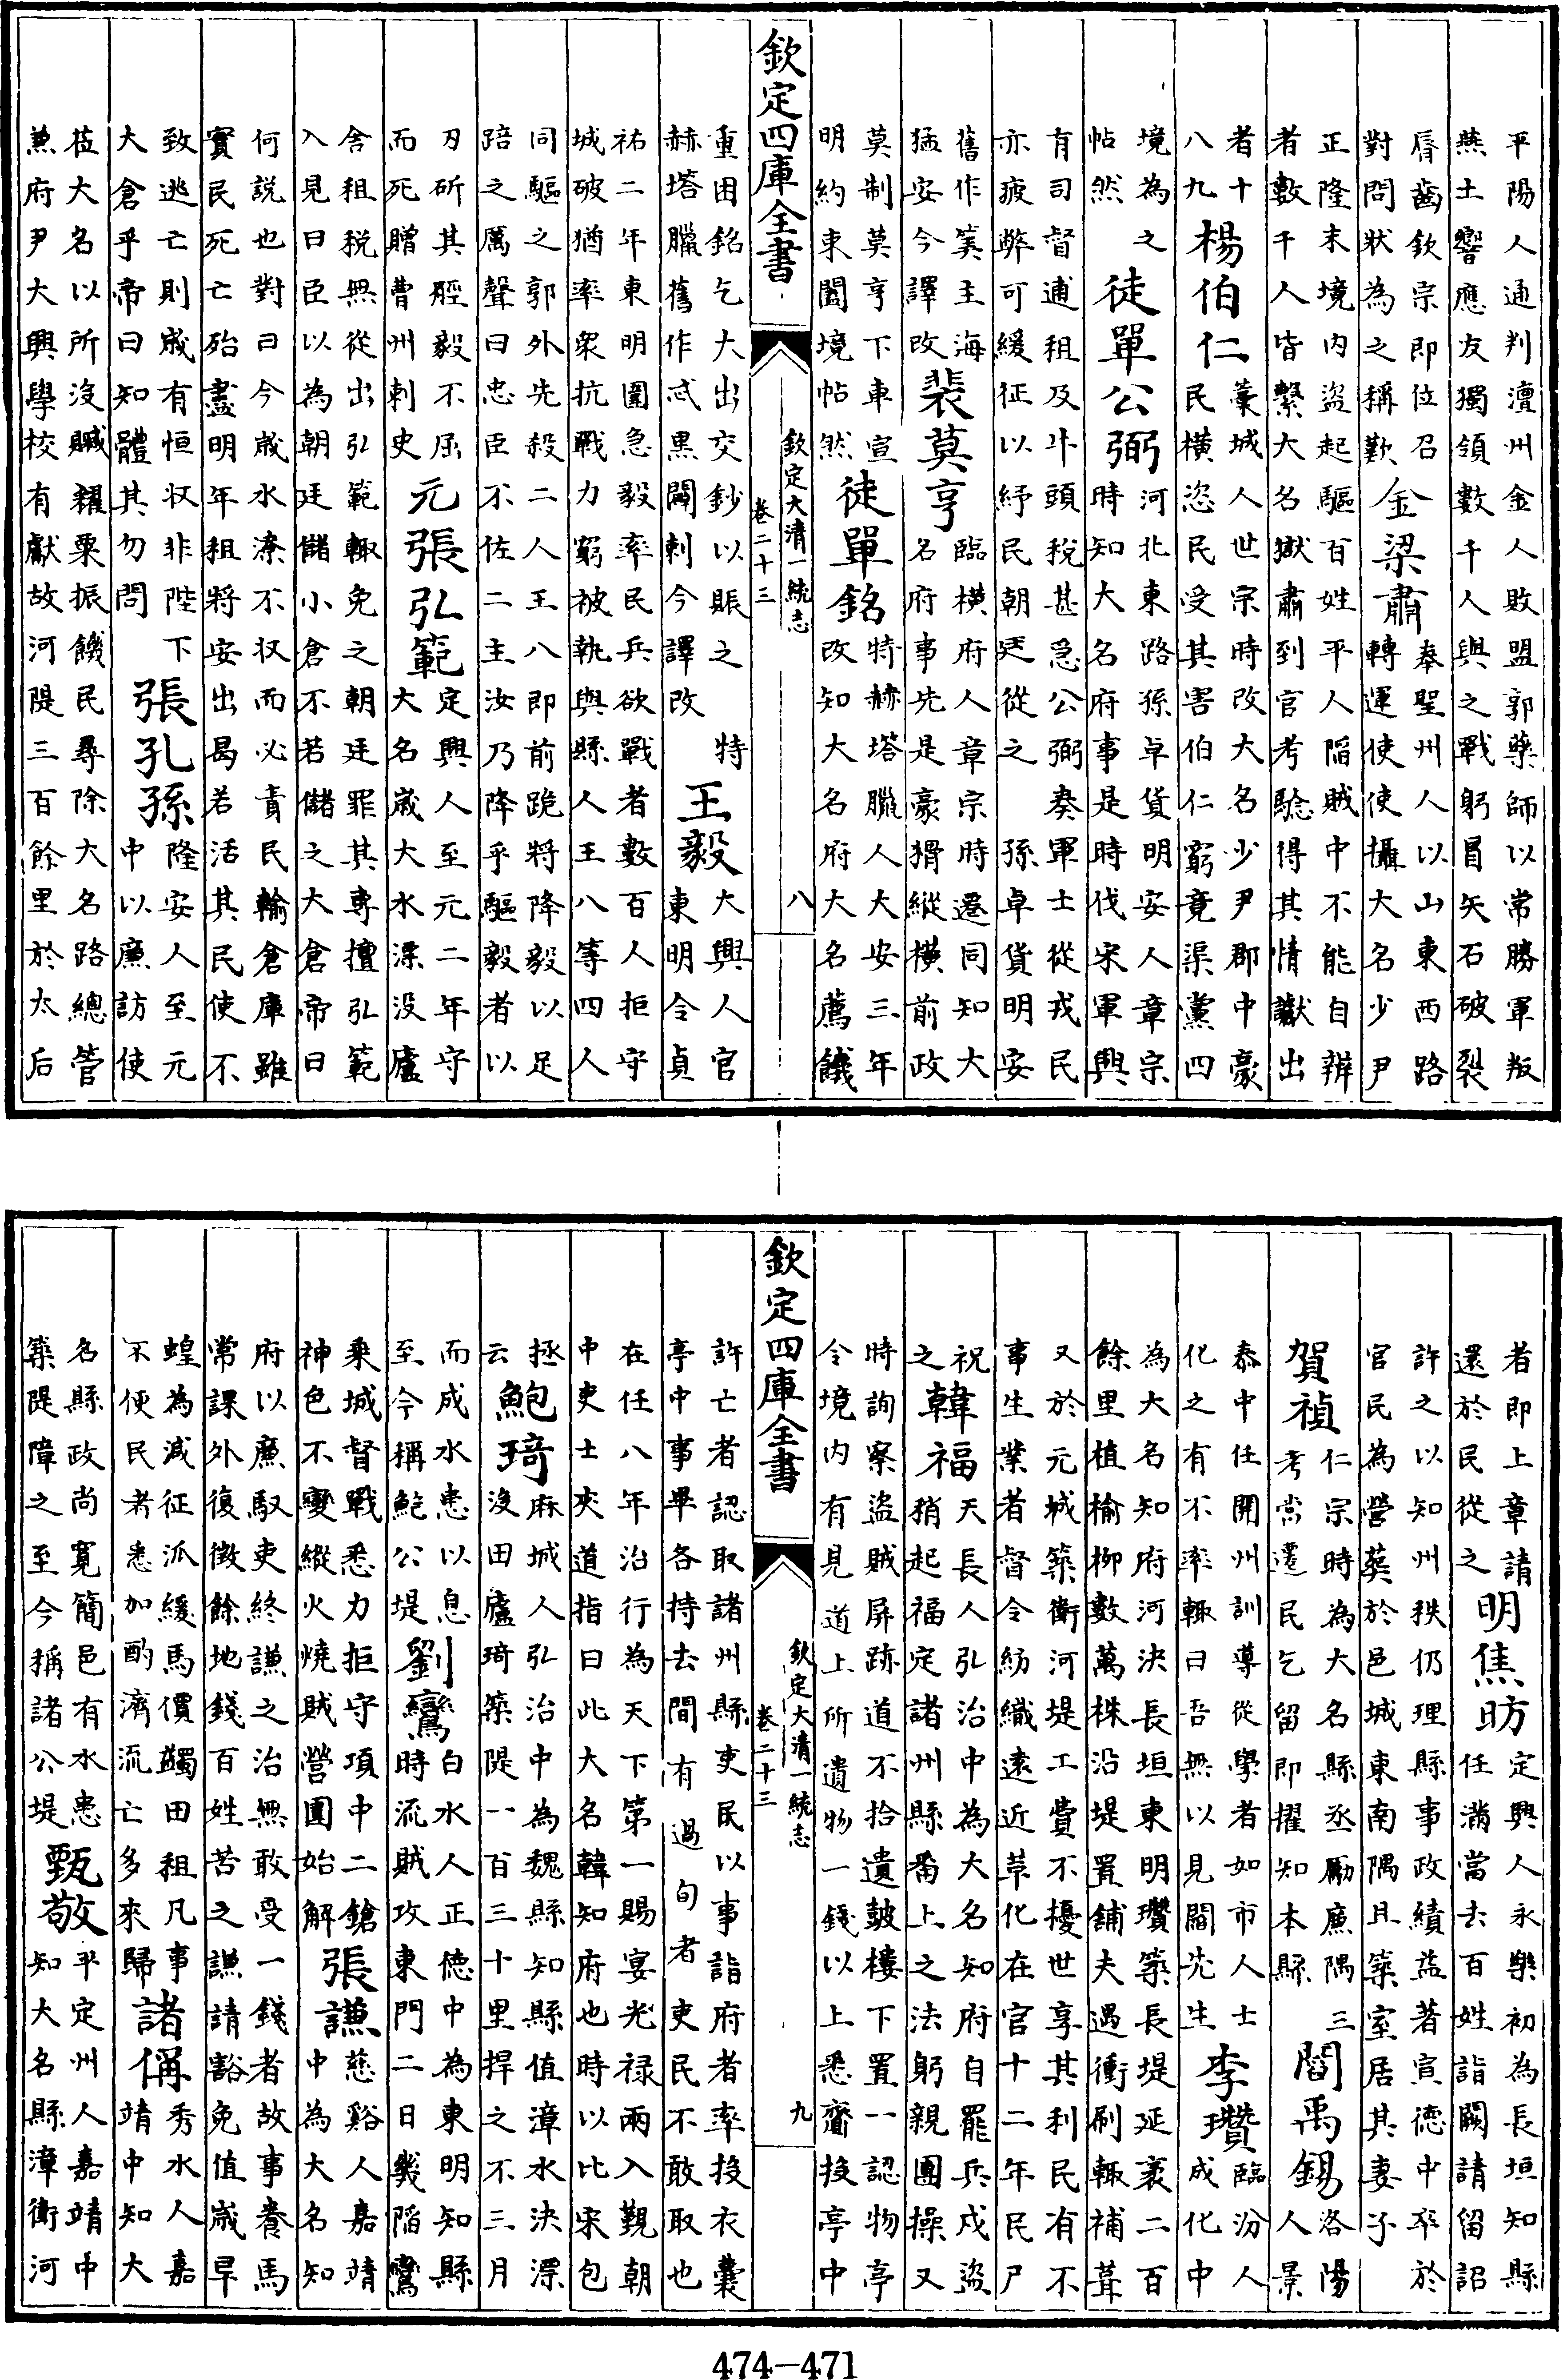 平陽人通判澶州金人敗盟郭藥師以常勝軍叛
燕土響應友獨領數千人與之戰躬冒矢石破裂
脣齒欽宗即位召
對問狀為之稱歎
金梁肅
奉聖州人以山東西路
轉運使攝大名少尹
正隆末境内盜起驅百姓平人陷賊中不能自辨
者數千人皆繫大名獄肅到官考驗得其情讞出
者十
八九
楊伯仁
藁城人世宗時改大名少尹郡中豪
民橫恣民受其害伯仁窮竟渠黨四
境為之
帖然
徒單公弼
河北東路孫卓貨明安人章宗
時知大名府事是時伐宋軍興
有司督逋租及牛頭税甚急公弼奏軍士從戎民
亦疲弊可緩征以紓民朝廷從之　孫卓貨明安
舊作筭主海
猛安今譯改
裴莫亨
臨橫府人章宗時遷同知大
名府事先是豪猾縱橫前政
莫制莫亨下車宣
明約束闔境帖然
徒單銘
特赫塔臘人大安三年
改知大名府大名薦饑
欽定四庫全書
欽定大清一統志
卷二十三
八
重困銘乞大出交鈔以賑之　特
赫塔臘舊作忒黑闢剌今譯改
王毅
大興人官
東明令貞
祐二年東明圍急毅率民兵欲戰者數百人拒守
城破猶率衆抗戰力窮被執與縣人王八等四人
同驅之郭外先殺二人王八即前跪將降毅以足
踣之厲聲曰忠臣不佐二主汝乃降乎驅毅者以
刃斫其脛毅不屈
而死贈曹州刺史
元張弘範
定興人至元二年守
大名歲大水漂没廬
舍租税無從出弘範輒免之朝廷罪其專擅弘範
入見曰臣以為朝廷儲小倉不若儲之大倉帝曰
何說也對曰今歲水潦不収而必責民輸倉庫雖
實民死亡殆盡明年租將安出曷若活其民使不
致逃亡則歲有恒収非陛下
大倉乎帝曰知體其勿問
張孔孫
隆安人至元
中以廉訪使
莅大名以所没贓糴粟振饑民尋除大名路總管
兼府尹大興學校有獻故河隄三百餘里於太后
者即上章請
還於民從之
明焦昉
定興人永樂初為長垣知縣
任滿當去百姓詣闕請留詔
許之以知州秩仍理縣事政績益著宣德中卒於
官民為營葬於邑城東南隅且築室居其妻子
賀禎
仁宗時為大名縣丞勵廉隅三
考當遷民乞留即擢知本縣
閻禹錫
洛陽
人景
泰中任開州訓導從學者如市人士
化之有不率輒曰吾無以見閻先生
李瓚
臨汾人
成化中
為大名知府河決長垣東明瓚築長堤延袤二百
餘里植榆柳數萬株沿堤置舖夫遇衝刷輒補葺
又於元城築衛河堤工費不擾世享其利民有不
事生業者督令紡織遠近草化在官十二年民尸
祝
之
韓福
天長人弘治中為大名知府自罷兵戍盜
稍起福定諸州縣番上之法躬親團操又
時詢察盜賊屏跡道不拾遺皷樓下置一認物亭
令境内有見道上所遺物一錢以上悉齎投亭中
欽定四庫全書
欽定大清一統志
卷二十三
九
許亡者認取諸州縣吏民以事詣府者率投衣囊
亭中事畢各持去間有過句者吏民不敢取也
在任八年治行為天下第一賜宴光禄兩入覲朝
中吏士夾道指曰此大名韓知府也時以比宋包
拯
云
鮑琦
麻城人弘治中為魏縣知縣值漳水決漂
没田廬琦築隄一百三十里捍之不三月
而成水患以息
至今稱鮑公堤
劉鸞
白水人正德中為東明知縣
時流賊攻東門二日幾陷鸞
乘城督戰悉力拒守項中二鎗
神色不變縱火燒賊營圍始解
張謙
慈谿人嘉靖
中為大名知
府以廉馭吏終謙之治無敢受一錢者故事養馬
常課外復徵餘地錢百姓苦之謙請豁免值歲旱
蝗為減征派緩馬價蠲田租凡事
不便民者悉加酌濟流亡多來歸
諸偁
秀水人嘉
靖中知大
名縣政尚寛簡邑有水患
築隄障之至今稱諸公堤
甄敬
平定州人嘉靖中
知大名縣漳衛河
474—471